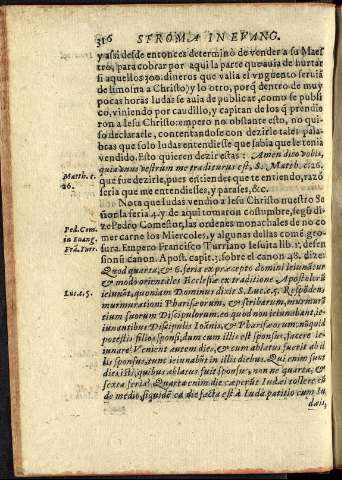 316 STROMA IN EVANG.
y assi desde entonces determinò de vender a su Maes
tro, para cobrar por aqui la parte que auia de hurtar
si aquellos 300. dineros que valia el vnguento seruiã
de limosna a Christo; y lo otro, porq̃ dentro de muy
pocas horas Iudas se auia de publicar, como se publi
cò, viniendo por caudillo, y capitan de los q̃ prendie
ron a Iesu Christo: empero no obstante esto, no qui-
so declararle, contentandose con dezirle tales pala-
bras que solo Iudas entendiesse que sabia que le tenia
vendido. Esto quieren dezir estas: Amen dico vobis,
quia vnus vestrum me traditurus est, S. Matth. c. 26.
Matth. c.
26.
que fue dezirle, pues entiendes que te entiendo, razõ
seria que me entendiesses, y parases, &c.
Nota que Iudas vendio a Iesu Christo nuestro Se
ñor la feria 4. y de aqui tomaron costumbre, segũ di-
ze Pedro Comestor, las ordenes monachales de no co
Ped. Com.
in Euang.
mer carne los Miercoles, y algunas dallas comẽ gro-
sura. Empero Francisco Turriano Iesuita lib. 1. defen
Frã. Turr.
sionũ canon. Apost. capit. 3. sobre el canon 48. dize:
Quod quarta, & 6. feria ex præcepto domini ieiunãtur
& modo orientales Ecclesiæ ex traditione Apostolorũ
ieiunãt, quoniam Dominus dixit S. Luc. c. 5. Respõdens
Luc. c. 5.
murmurationi Pharisæorum, & scribarum, murmurã
tium suorum Discipulorum, eo quod non ieiunabant, ie-
iunantibus Discipulis Ioãnis, & Pharisæorum: nũquid
potestis filios sponsi, dum cum illis est sponsus, facere ie-
iunare? Venient autem dies, & cum ablatus fuerit ab il
lis sponsus, tunc ieiunabũt in illis diebus. Qui enim sunt
dies isti, quibus ablatus fuit sponsus, nonne quarta, &
sexta feria? Quarta enim die cæperũt Iudæi tollere eũ
de medio, siquidẽ ea die facta est à Iuda patitio cum Iu
dæis,